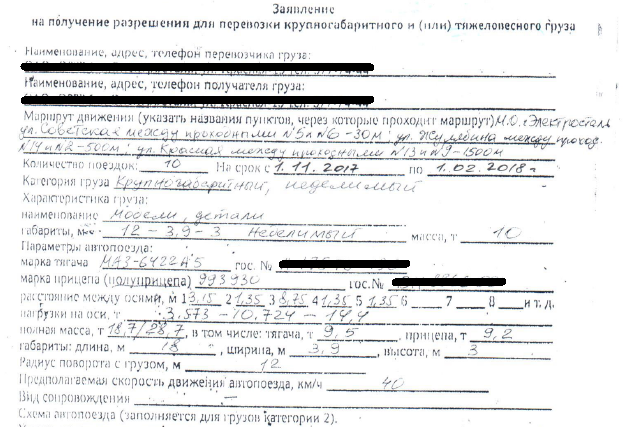 Заявление
на получение разрешения для перевозки крупногабаритного и (или) тяжеловесного груза
Наименование, адрес, телефон перевозчика груза:
Наименование, адрес, телефон получателя груза:
Маршрут движения (указать названия пунктов, через которые проходит маршрут) М.О. г.Электросталь
ул. Советская между проходными №5 и №6 -30м; ул. Жулябина между проход.
-500м; ул. Красная между проходными №13 и №9-1500м
Количество поездок: 10 На срок с 1.11.2017 по 1.02.2018г
Категория груза Крупногабаритный, неделимый
Характеристика груза:
наименование Модели, детали
габариты, м 12-3,9-3 Неделимый масса, т 10
Параметры автопоезда:
марка тягача МАЗ-6422А5 гос. №
марка прицепа (полуприцепа) 993930 гос. №
расстояние между осями, м 1 3,15 2 1,35 3 8,75 4 1,35 5 1,35 6 7 8 и т.д.
нагрузки на оси, т 3.573-10,724-14,4
полная масса, т 18,7/28,7, в том числе: тягача, т 9,5, прицепа, т 9,2
габариты: длина, м 18, ширина, м 3,9, высота, м 3
Радиус поворота с грузом, м 12
Предполагаемая скорость движения автопоезда, км/ч 40
Вид сопровождения
Схема автопоезда (заполняется для грузов категории 2).